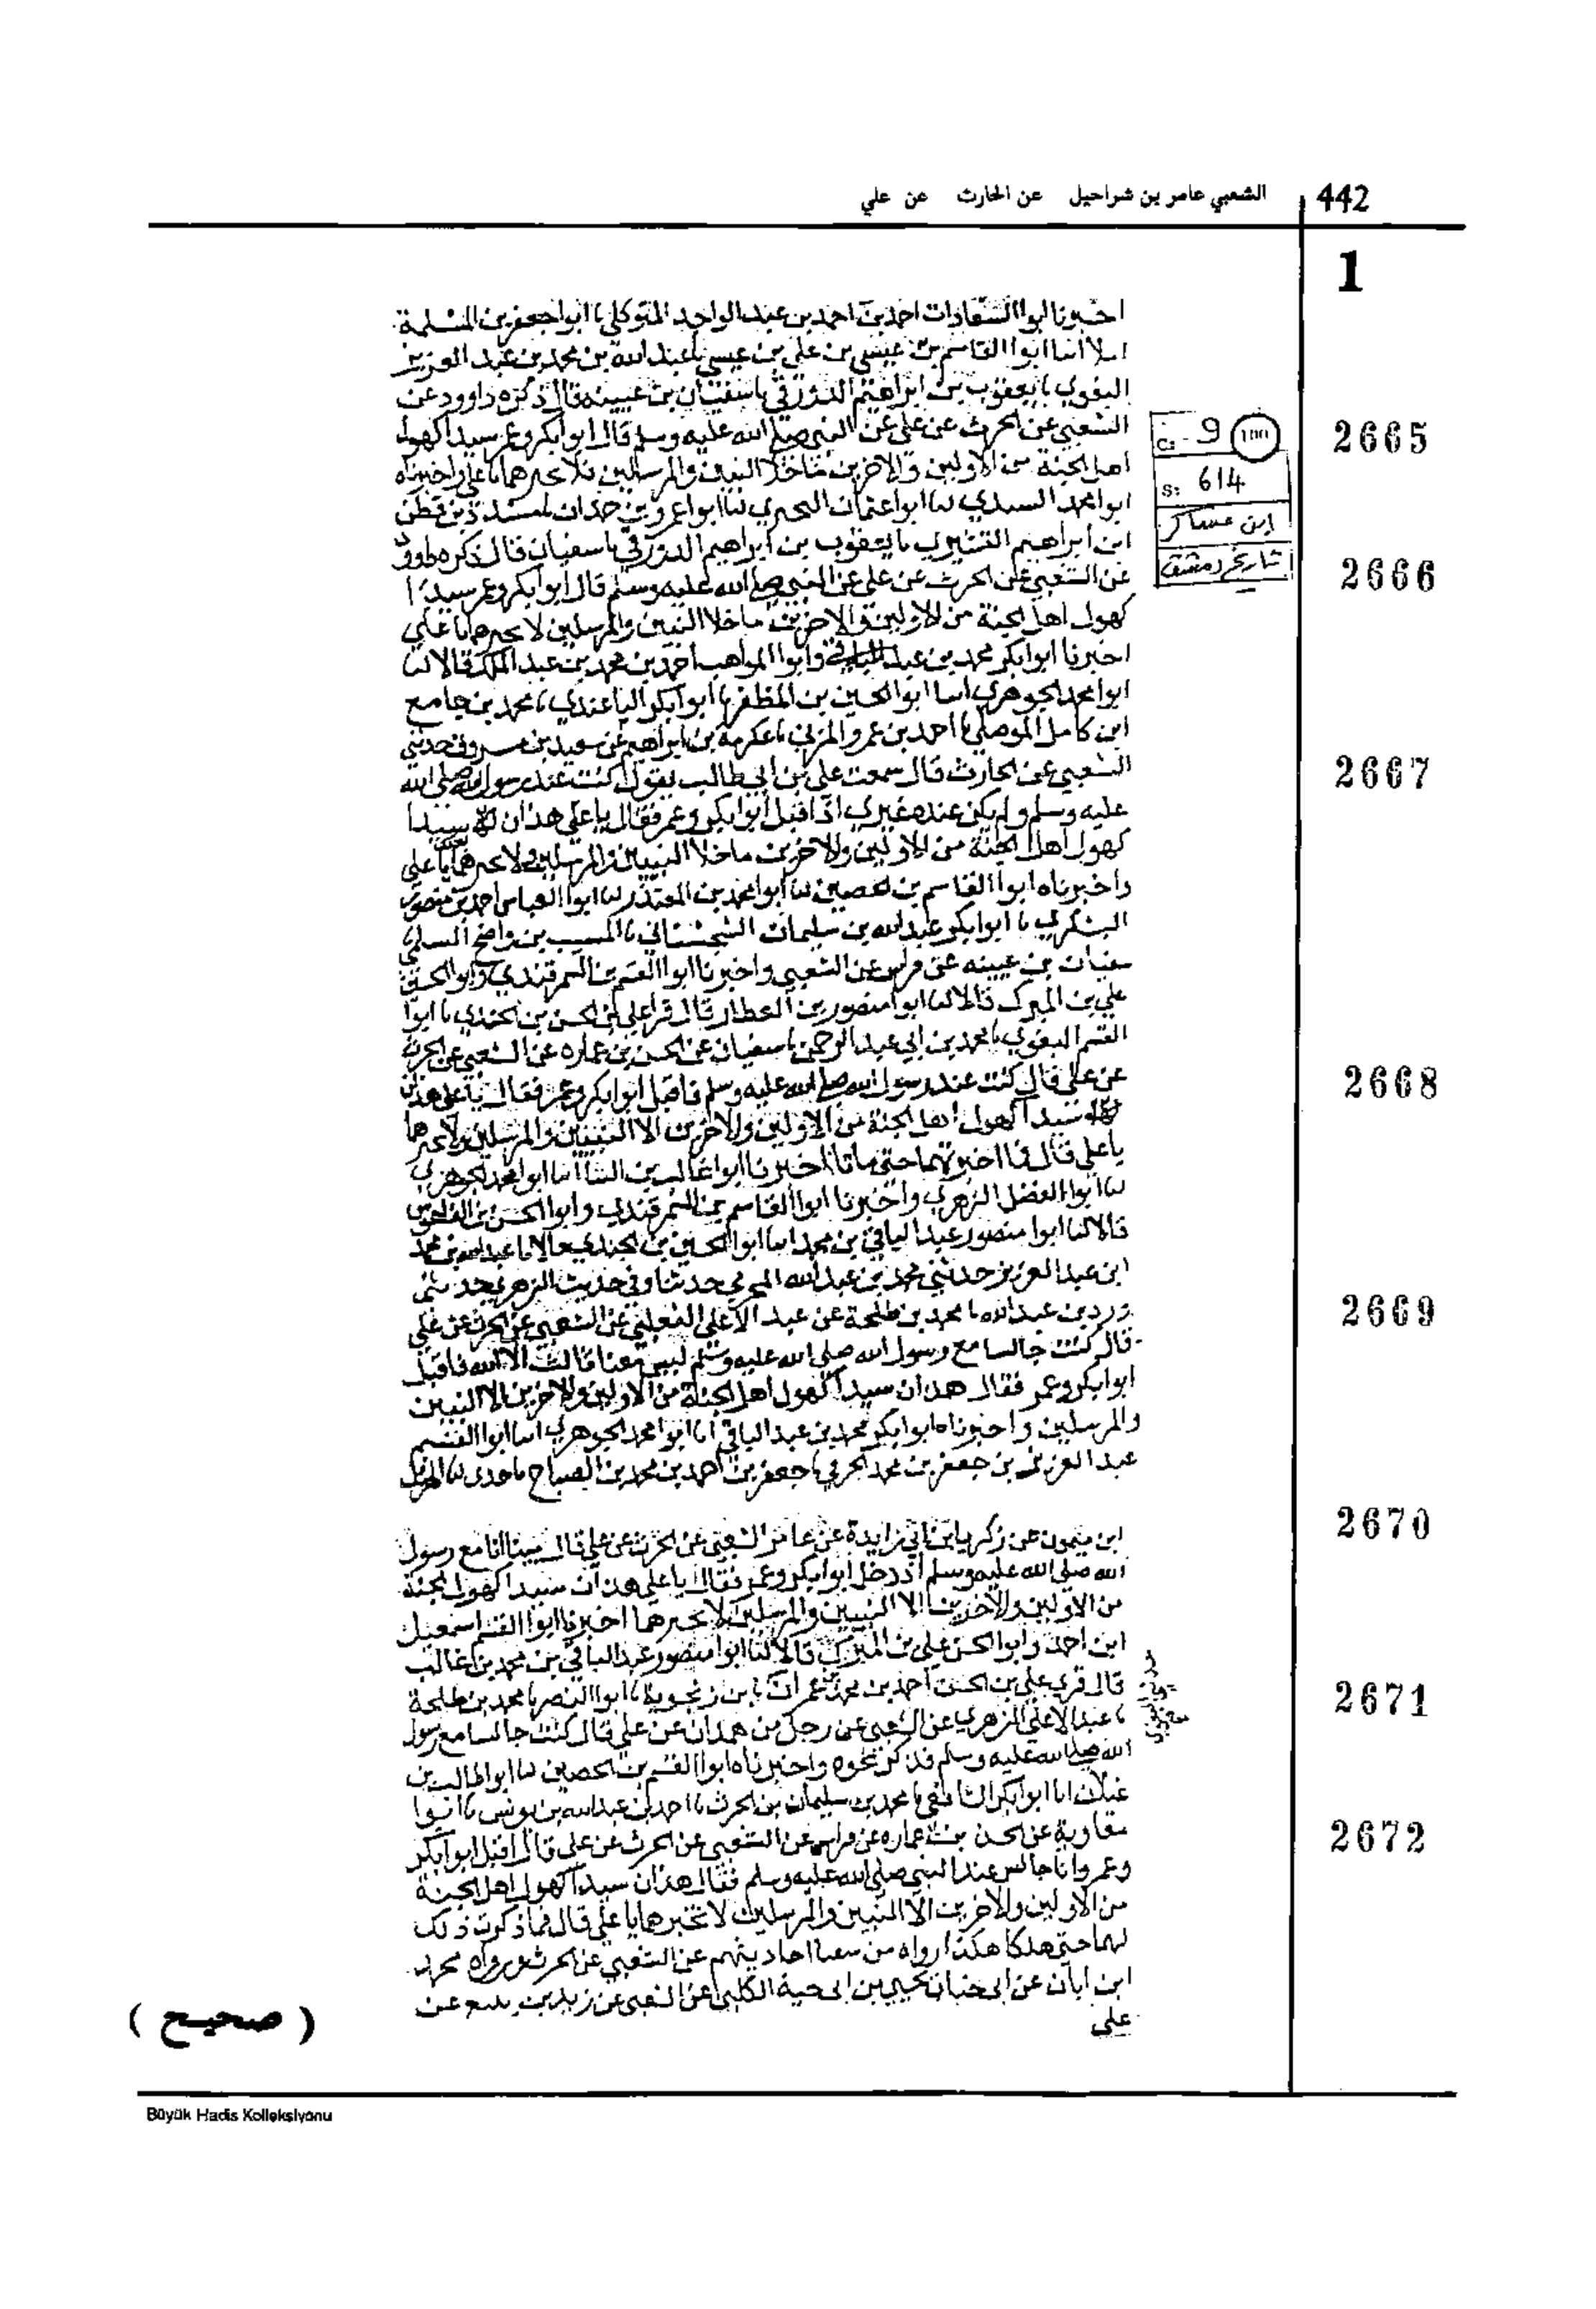 442
الشعبي عامر بن شراحيل عن الحارث عن علي
1
اخبرنا ابوا السعادات احمد بن احمد بن عبد الواحد المتوكلي نا ابوا جعفر بن المسلمة
املا انبا ابوا القاسم بن عيسى بن علي بن عيسى نا عبد الله بن محمد بن عبد العزيز
البغوي نا يعقوب بن ابراهيم الدورقي نا سفيان بن عيينه قال ذكره داوود عن
الشعبي عن الحرث عن علي عن النبي صلى الله عليه وسلم قال ابوا بكر وعمر سيدا كهول
اهل الجنة من الاولين والاخرين ما خلا النبيين والمرسلين لا تخبرهما يا علي واخبرناه
ابوا محمد السيدي انا ابوا عثمان البحيري انا ابوا عمرو بن حمدان نا مسدد بن قطن
ابن ابراهيم القشيري نا يعقوب بن ابراهيم الدورقي نا سفيان قال ذكره داوود
عن الشعبي عن الحرث عن علي عن النبي صلى الله عليه وسلم قال ابوا بكر وعمر سيدا
كهول اهل الجنة من الاولين والاخرين ما خلا النبيين والمرسلين لا تخبرهما يا علي
اخبرنا ابوا بكر محمد بن عبد الباقي وابوا المواهب احمد بن محمد بن عبد الملك قالا انا
ابوا محمد الجوهري انبا ابوا الحسين بن المظفر نا ابوا بكر الباغندي نا محمد بن جامع
ابن كامل الموصلي نا احمد بن عمرو المزني نا عكرمة بن ابراهيم عن سعيد بن مسروق حدثني
الشعبي عن الحارث قال سمعت علي بن ابي طالب يقول كنت عند رسول الله صلى الله
عليه وسلم ولم يكن عنده غيري اذ اقبل ابوا بكر وعمر فقال يا علي هذان سيدا
كهول اهل الجنة من الاولين والاخرين ما خلا النبيين والمرسلين ولا تخبرهما يا علي
واخبرناه ابوا القاسم بن الحصين انا ابوا محمد بن المقتدر انا ابوا العباس احمد بن منصور
اليشكري نا ابوا بكر عبد الله بن سليمان السجستاني نا المسيب بن واضح السلمي
سفيان بن عيينه عن فراس عن الشعبي واخبرنا ابوا القسم بن السمرقندي وابوا الحسن
علي بن المبرك قالا انا ابوا منصور بن العطار قال قرا علي بن الحسن بن الجندي نا ابوا
القسم البغوي نا محمد بن ابي عبد الرحمن نا سفيان عن الحسن بن عماره عن الشعبي عن الحرث
عن علي قال كنت عند رسول الله صلى الله عليه وسلم فاقبل ابوا بكر وعمر فقال يا علي هذان
سيدا كهول اهل الجنة من الاولين والاخرين الا النبيين والمرسلين ولا تخبرهما
يا علي قال فما اخبرتهما حتى ماتا اخبرنا ابوا غالب بن البنا انبا ابوا محمد الجوهري
انا ابوا الفضل الزهري واخبرنا ابوا القاسم بن السمرقندي وابوا الحسن بن
قالا انا ابوا منصور عبد الباقي بن محمد انبا ابوا الحسين بن الجندي قالا نا عبد الله بن محمد
ابن عبد العزيز حدثني محمد بن عبد الله المخرمي حدثنا وفي حديث الزهري حدثني
ورد بن عبد الله نا محمد بن طلحة عن عبد الاعلى الثعلبي عن الشعبي عن الحرث عن علي
قال كنت جالسا مع رسول الله صلى الله عليه وسلم ليس معنا ثالث الا الله فاقبل
ابوا بكر وعمر فقال هذان سيدا كهول اهل الجنة من الاولين والاخرين الا النبيين
والمرسلين واخبرناه ابوا بكر محمد بن عبد الباقي انا ابوا محمد الجوهري انبا ابوا القسم
عبد العزيز بن جعفر بن محمد الخرقي نا جعفر بن احمد بن محمد بن الصباح نا
ابن ميمون عن زكريا بن ابي زايدة عن عامر الشعبي عن الحرث عن علي قال بينا انا مع رسول
الله صلى الله عليه وسلم اذ دخل ابوا بكر وعمر فقال يا علي هذان سيدا كهول الجنة
من الاولين والاخرين الا النبيين والمرسلين لا تخبرهما اخبرنا ابوا القسم اسمعيل
ابن احمد وابوا الحسن علي بن المبرك قالا انا ابوا منصور عبد الباقي بن محمد بن غالب
قال قري علي بن الحسن احمد بن محمد بن عمران نا بن زنجوية نا ابوا النصر نا محمد بن طلحة
نا عبد الاعلى الزهري عن الشعبي عن رجل من همدان عن علي قال كنت جالسا مع رسول
الله صلى الله عليه وسلم فذكر نحوه واخبرناه ابوا القسم بن الحصين انا ابوا طالب بن
غيلان انا ابوا بكر الشافعي نا محمد بن سليمان بن الحرث نا احمد بن عبد الله بن يونس نا ابوا
معاوية عن الحسن بن عماره عن فراس عن الشعبي عن الحرث عن علي قال اقبل ابوا بكر
وعمر وانا جالس عند النبي صلى الله عليه وسلم فقال هذان سيدا كهول اهل الجنة
من الاولين والاخرين الا النبيين والمرسلين لا تخبرهما يا علي قال فما ذكرت ذلك
لهما حتى هلكا هكذا رواه من سمعنا احاديثهم عن الشعبي عن الحرث ورواه محمد
ابن ابان عن ابي جناب يحيى بن ابي حية الكلبي عن الشعبي عن زيد بن يثيع عن
علي
C: 9 100
S: 614
ابن عساكر
تاريخ دمشق
2665
2666
2667
2668
2669
2670
2671
2672
( صحيح )
Büyük Hadis Kolleksiyonu